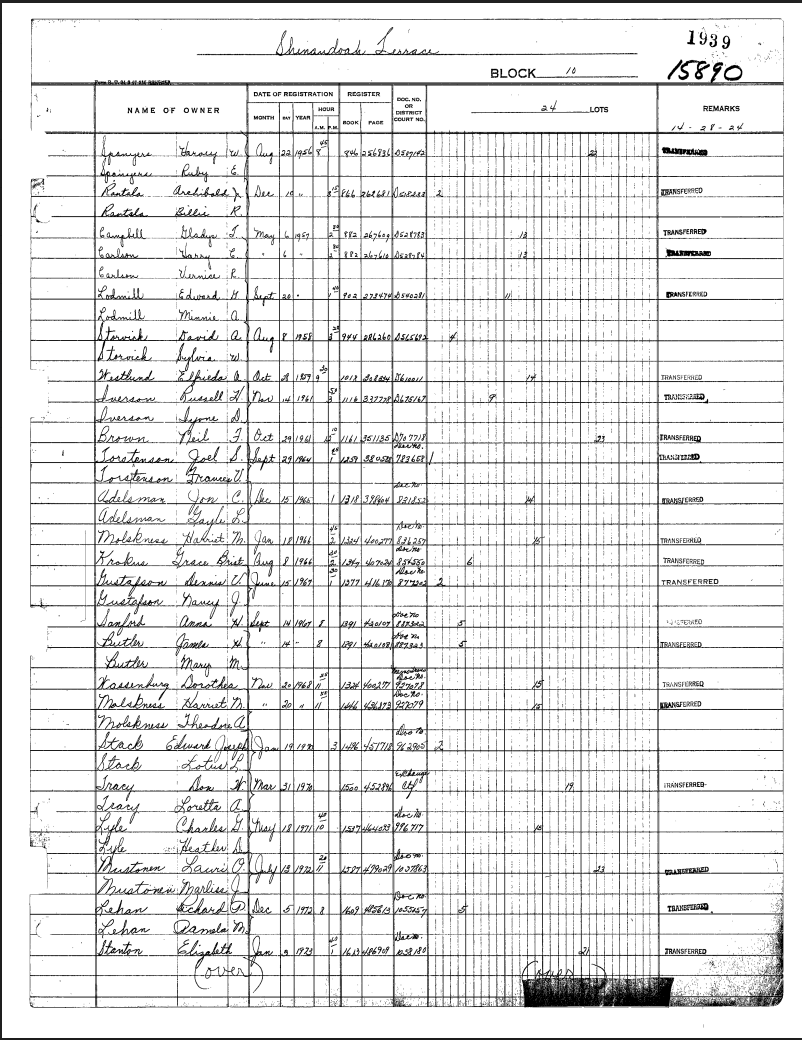 Shenandoah Terrace
1939
15890
BLOCK 10
DATE OF REGISTRATION REGISTER DOC. NO. OR DISTRICT COURT NO. 24 LOTS
NAME OF OWNER MONTH DAY YEAR HOUR A.M. P.M. BOOK PAGE REMARKS
14-28-24
Harvey W. Aug 22 1956 8 846 256836 D507142 22 TRANSFERRED
Ruby E.
Rantala Archibald J. Dec 10 " 866 262681 2 TRANSFERRED
Rantala Billie R.
Campbell Gladys T. May 6 1957 2 882 267609 D528783 13 TRANSFERRED
Carlson Harry E. " 6 2 882 267610 D528784 13 TRANSFERRED
Carlson Vernice R.
Lodmill Edward G. Sept 20 " 1 902 273474 D540281 11 TRANSFERRED
Lodmill Minnie A.
Storvick David A. Aug 8 1958 3 944 286260 D565692 4
Storvick Sylvia W.
Westlund Elfrieda A. Oct 28 1959 9 D610011 14 TRANSFERRED
Iverson Russell H. Nov 14 1961 3 1116 337778 D675167 9 TRANSFERRED
Iverson D.
Brown Neil F. Oct 29 1961 12 1161 351135 D707718 23 TRANSFERRED
Torstenson Joel S. Sept 29 1964 1 1259 Doc No. 783658 1 TRANSFERRED
Torstenson Frances V.
Adelsman Jon C. Dec 15 1965 1 1318 398604 Doc No 831852 14 TRANSFERRED
Adelsman Gayle L.
Molskness Harriet M. Jan 18 1966 2 1324 400277 Doc No 836257 15 TRANSFERRED
Krokus Grace Brist Aug 8 1966 2 1347 407024 Doc No 854550 6 TRANSFERRED
Gustafson Dennis V. June 15 1967 1 1377 416170 Doc No 877202 2 TRANSFERRED
Gustafson Nancy J.
Sanford Anna H. Sept 14 1967 8 1391 420107 Doc No 887322 5 TRANSFERRED
Butler James H. " 14 " 8 1391 420108 Doc No 887323 5 TRANSFERRED
Butler Mary M.
Wassenburg Dorothea Nov 20 1968 11 1324 400277 Doc No. 927078 15 TRANSFERRED
Molskness Harriet M. " 20 " 11 1446 436873 Doc No. 927079 15 TRANSFERRED
Molskness Theodore A.
Stack Edward Joseph Jan 19 1970 3 1496 451718 Doc No. 962905 2
Stack Lotus L.
Tracy Don W. Mar 31 1970 1500 452896 Exchange Ctf 19 TRANSFERRED
Tracy Loretta A.
Lyle Charles G. May 18 1971 10 1537 464093 Doc No 996717 15
Lyle Heather D.
Mustonen Lauri O. July 13 1972 11 1587 479029 Doc no. 1037863 23 TRANSFERRED
Mustonen Marliss J.
Lehan Richard P. Dec 5 1972 8 1609 485613 Doc no. 1055257 5 TRANSFERRED
Lehan Pamela M.
Stanton Elizabeth Jan 3 1973 1 1613 486909 Doc no. 1058180 21 TRANSFERRED
(over) (over)